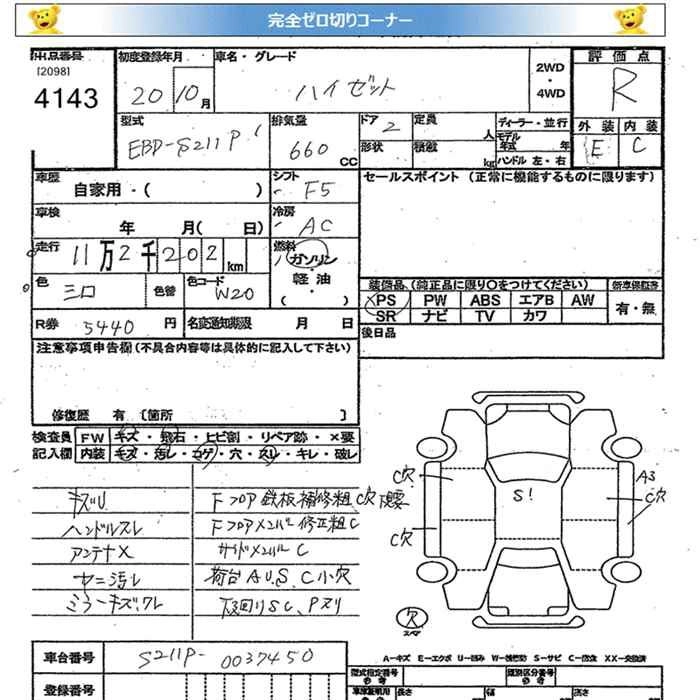 完全ゼロ切りコーナー
出品番号 初度登録年月 車名・グレード 2WD・4WD 評価点
[2098]
4143 20 10月 ハイゼット R
型式 排気量 ドア 定員 ディーラー・並行 外装 内装
EBD-S211P 660 CC 2 人 モデル年式 年 E C
形状 積載 kg ハンドル 左・右
車歴 自家用・( ) シフト F5 セールスポイント (正常に機能するものに限ります)
車検 年 月( 日) 冷房 AC
走行 11万2千202km 燃料 ガソリン・軽油・( )
色 シロ 色替 色コード W20 装備品 (純正品に限り〇をつけてください) 新車保証書
PS PW ABS エアB AW 有・無
SR ナビ TV カワ
R券 5440円 名変通知期限 月 日 後日品
注意事項申告欄 (不具合内容等は具体的に記入して下さい)
修復歴 有 [箇所 ]
検査員 FW キズ・飛石・ヒビ割・リペア跡・×要
記入欄 内装 キズ・汚レ・コゲ・穴・スレ・キレ・破レ
キズU Fフロア鉄板補修粗 C穴
ハンドルスレ Fフロアメンバー修正粗C
アンテナX サイドメンバーC
ヤニ汚レ 荷台AU、S、C小穴
ミラーキズ、ワレ 下回りSC、Pヌリ
C穴 A3
S! C穴
C穴
欠
スペア
A-キズ E-エクボ U-凹み W-補修跡 S-サビ C-腐食 XX-交換済
車台番号 S211P-0037450 型式指定番号 類別区分番号
登録番号 長さ 幅 高さ